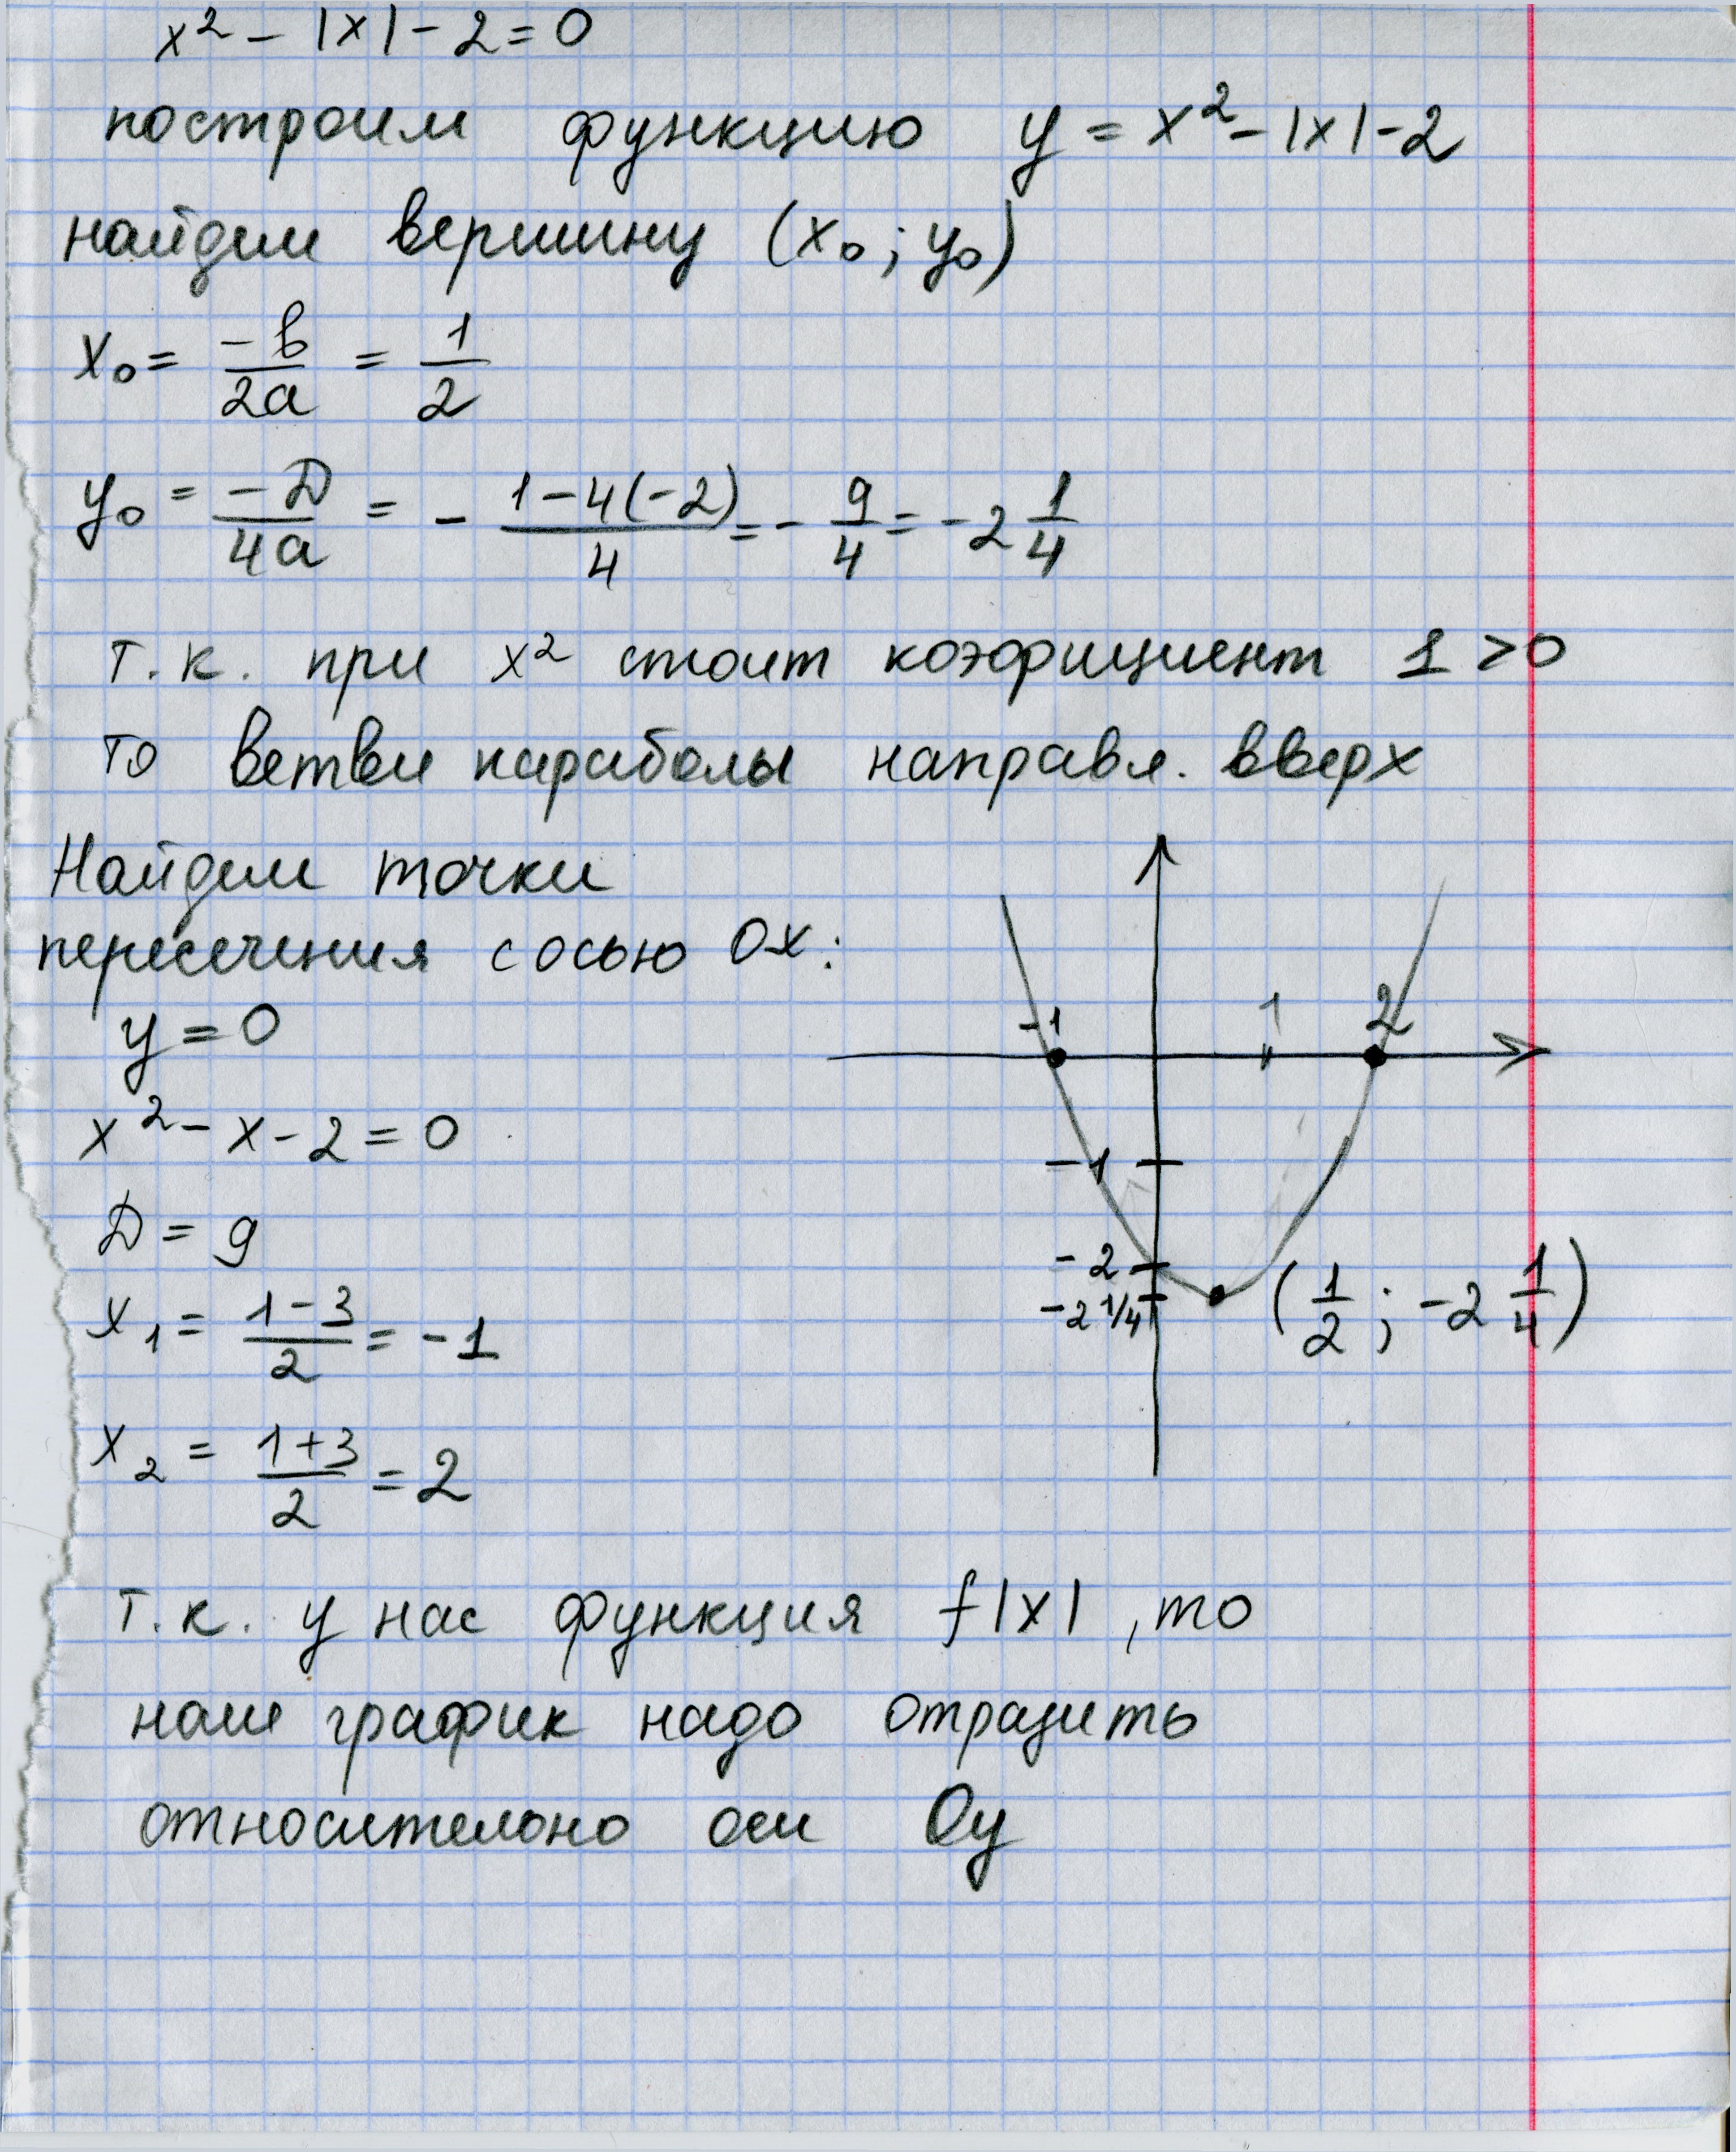 x² - |x| - 2 = 0
построим функцию y = x² - |x| - 2
найдем вершину (x₀; y₀)
x₀ = -b/2a = 1/2
y₀ = -D/4a = - (1-4(-2))/4 = - 9/4 = -2 1/4
т.к. при x² стоит коэфициент 1 > 0
то ветви параболы направл. вверх
Найдем точки
пересечения с осью Ox:
y = 0
x² - x - 2 = 0
D = 9
x₁ = (1-3)/2 = -1
x₂ = (1+3)/2 = 2
-1 1 2
-1
-2
-2 1/4
(1/2; -2 1/4)
т.к. у нас функция f|x|, то
наш график надо отразить
относительно оси Oy